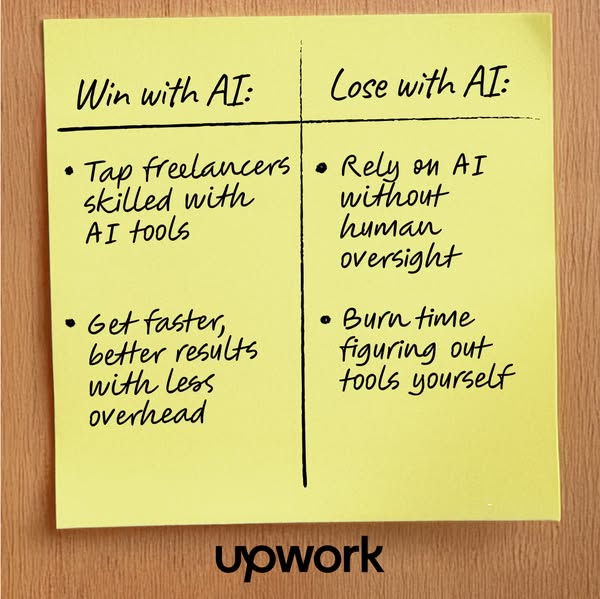 Win with AI:
• Tap freelancers
skilled with
AI tools
• Get faster,
better results
with less
overhead
Lose with AI:
• Rely on AI
without
human
oversight
• Burn time
figuring out
tools yourself
upwork